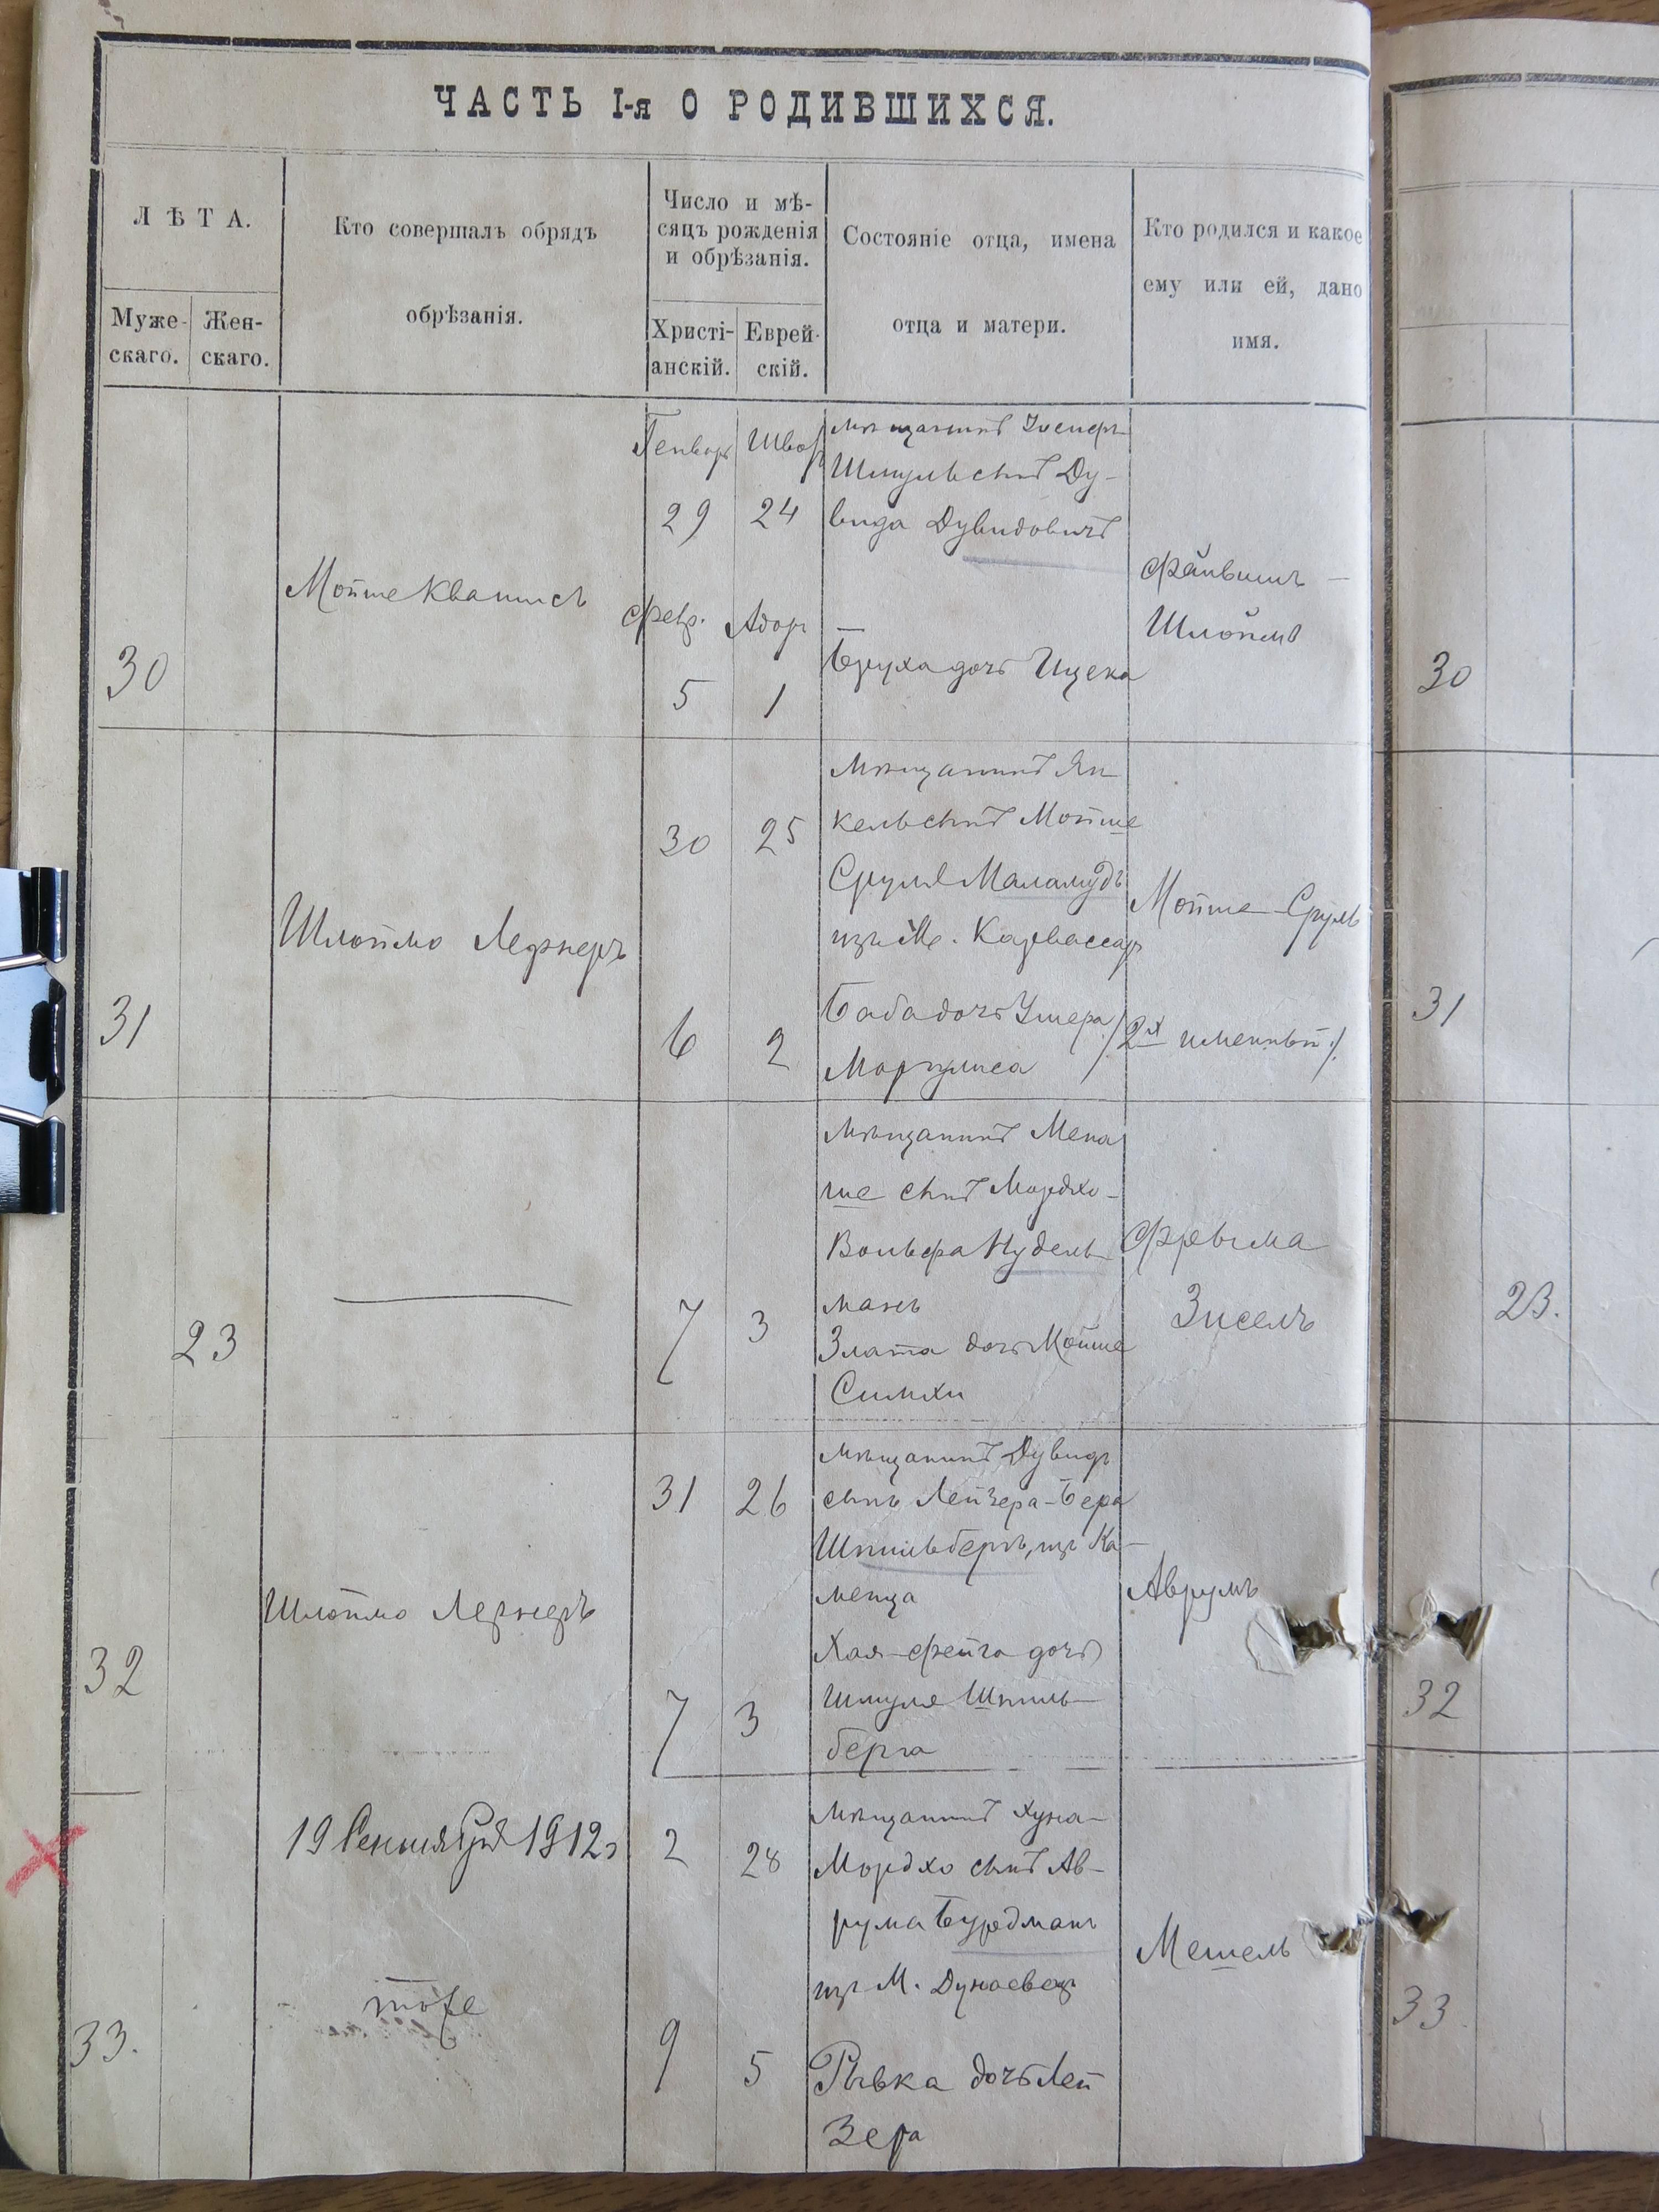 ЧАСТЬ I-я О РОДИВШИХСЯ.
ЛѢТА.
Муже-
скаго.
Жен-
скаго.
Кто совершалъ обрядъ
обрѣзанія.
Число и мѣ-
сяцъ рожденія
и обрѣзанія.
Христі-
анскій.
Еврей-
скій.
Состояніе отца, имена
отца и матери.
Кто родился и какое
ему или ей, дано
имя.
30
Мойше
Генварь
29
Февр.
5
Шват
24
Адор
1
мѣщанинъ Иосифъ
Шмуль сынъ Ду-
вида Дувидовичъ
Бруха дочь Ицека
Файвишъ —
Шлоймо
30
31
Шлоймо Лернеръ
30
6
25
2
Мѣщанинъ Ян
кель сынъ Мойше
Сруля Маламудъ
изъ М.
Баба дочь Ушера
Маргулиса
Мойше-Сруль
/2х именный/
31
23
7
3
Мѣщанинъ Мена
ше сынъ Мордко-
Вольфа Нудель
манъ
Злата дочь Мойше
Симхи
Фрейма
Зисель
23.
32
Шлоймо Лернеръ
31
7
26
3
Мѣщанинъ Дувидъ
сынъ Лейзера-Бера
Шпильбергъ, изъ Ка-
менца
Хая-Фейга дочь
Шмуля Шпиль-
берга
Аврумъ
32
33.
19 Сентября 1912г
тоже
2
9
28
5
Мѣщанинъ Хуна-
Мордхо сынъ Ав-
рума Бурдманъ
изъ М. Дунаевец
Рывка дочь Лей
Зера
Мешель
33